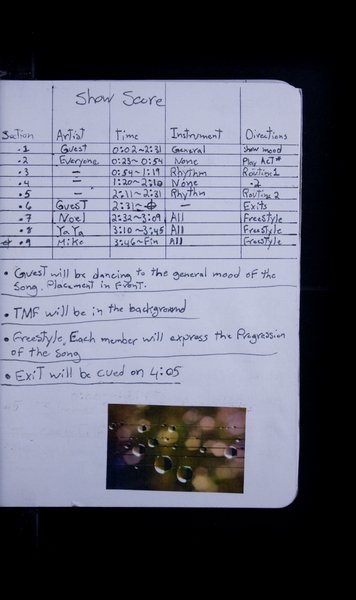 Show Score
Section Artist Time Instrument Directions
•1 Guest 0:02~2:31 General Show mood
•2 Everyone 0:23~0:54 None Play ACT*
•3 — 0:54~1:19 Rhythm Routine 1
•4 — 1:20~2:10 None •2
•5 — 2:11~2:31 Rhythm Routine 2
•6 Guest 2:31~ — Exits
•7 Noel 2:32~3:09 All Freestyle
•8 YaYa 3:10~3:45 All Freestyle
•9 Mike 3:46~Fin All Freestyle
• Guest will be dancing to the general mood of the
Song. Placement in Event.
• TMF will be in the background
• Freestyle, Each member will express the Progression
of the song
• Exit will be cued on 4:05